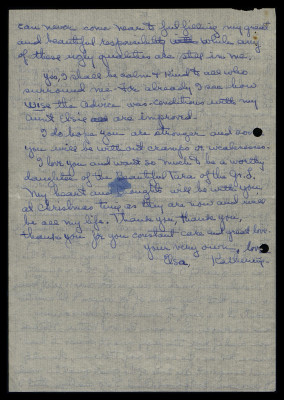 can never come near to fulfilling my great
and beautiful responsibility while any
of these ugly qualities are still in me.
Yes, I shall be calm & kind to all who
surround me - for already I see how
wise the advice was - conditions with my
aunt Elsie are improved.
I do hope you are stronger and soon
you will be without cramps or weakness.
I love you and want so much to be a worthy
daughter of the Beautiful Tara of the
My heart and will be with you
at Christmas time as they are now and will
be all my life. Thank you, thank you,
thank you for your constant care and great love.
Your very own, love
Katherine.